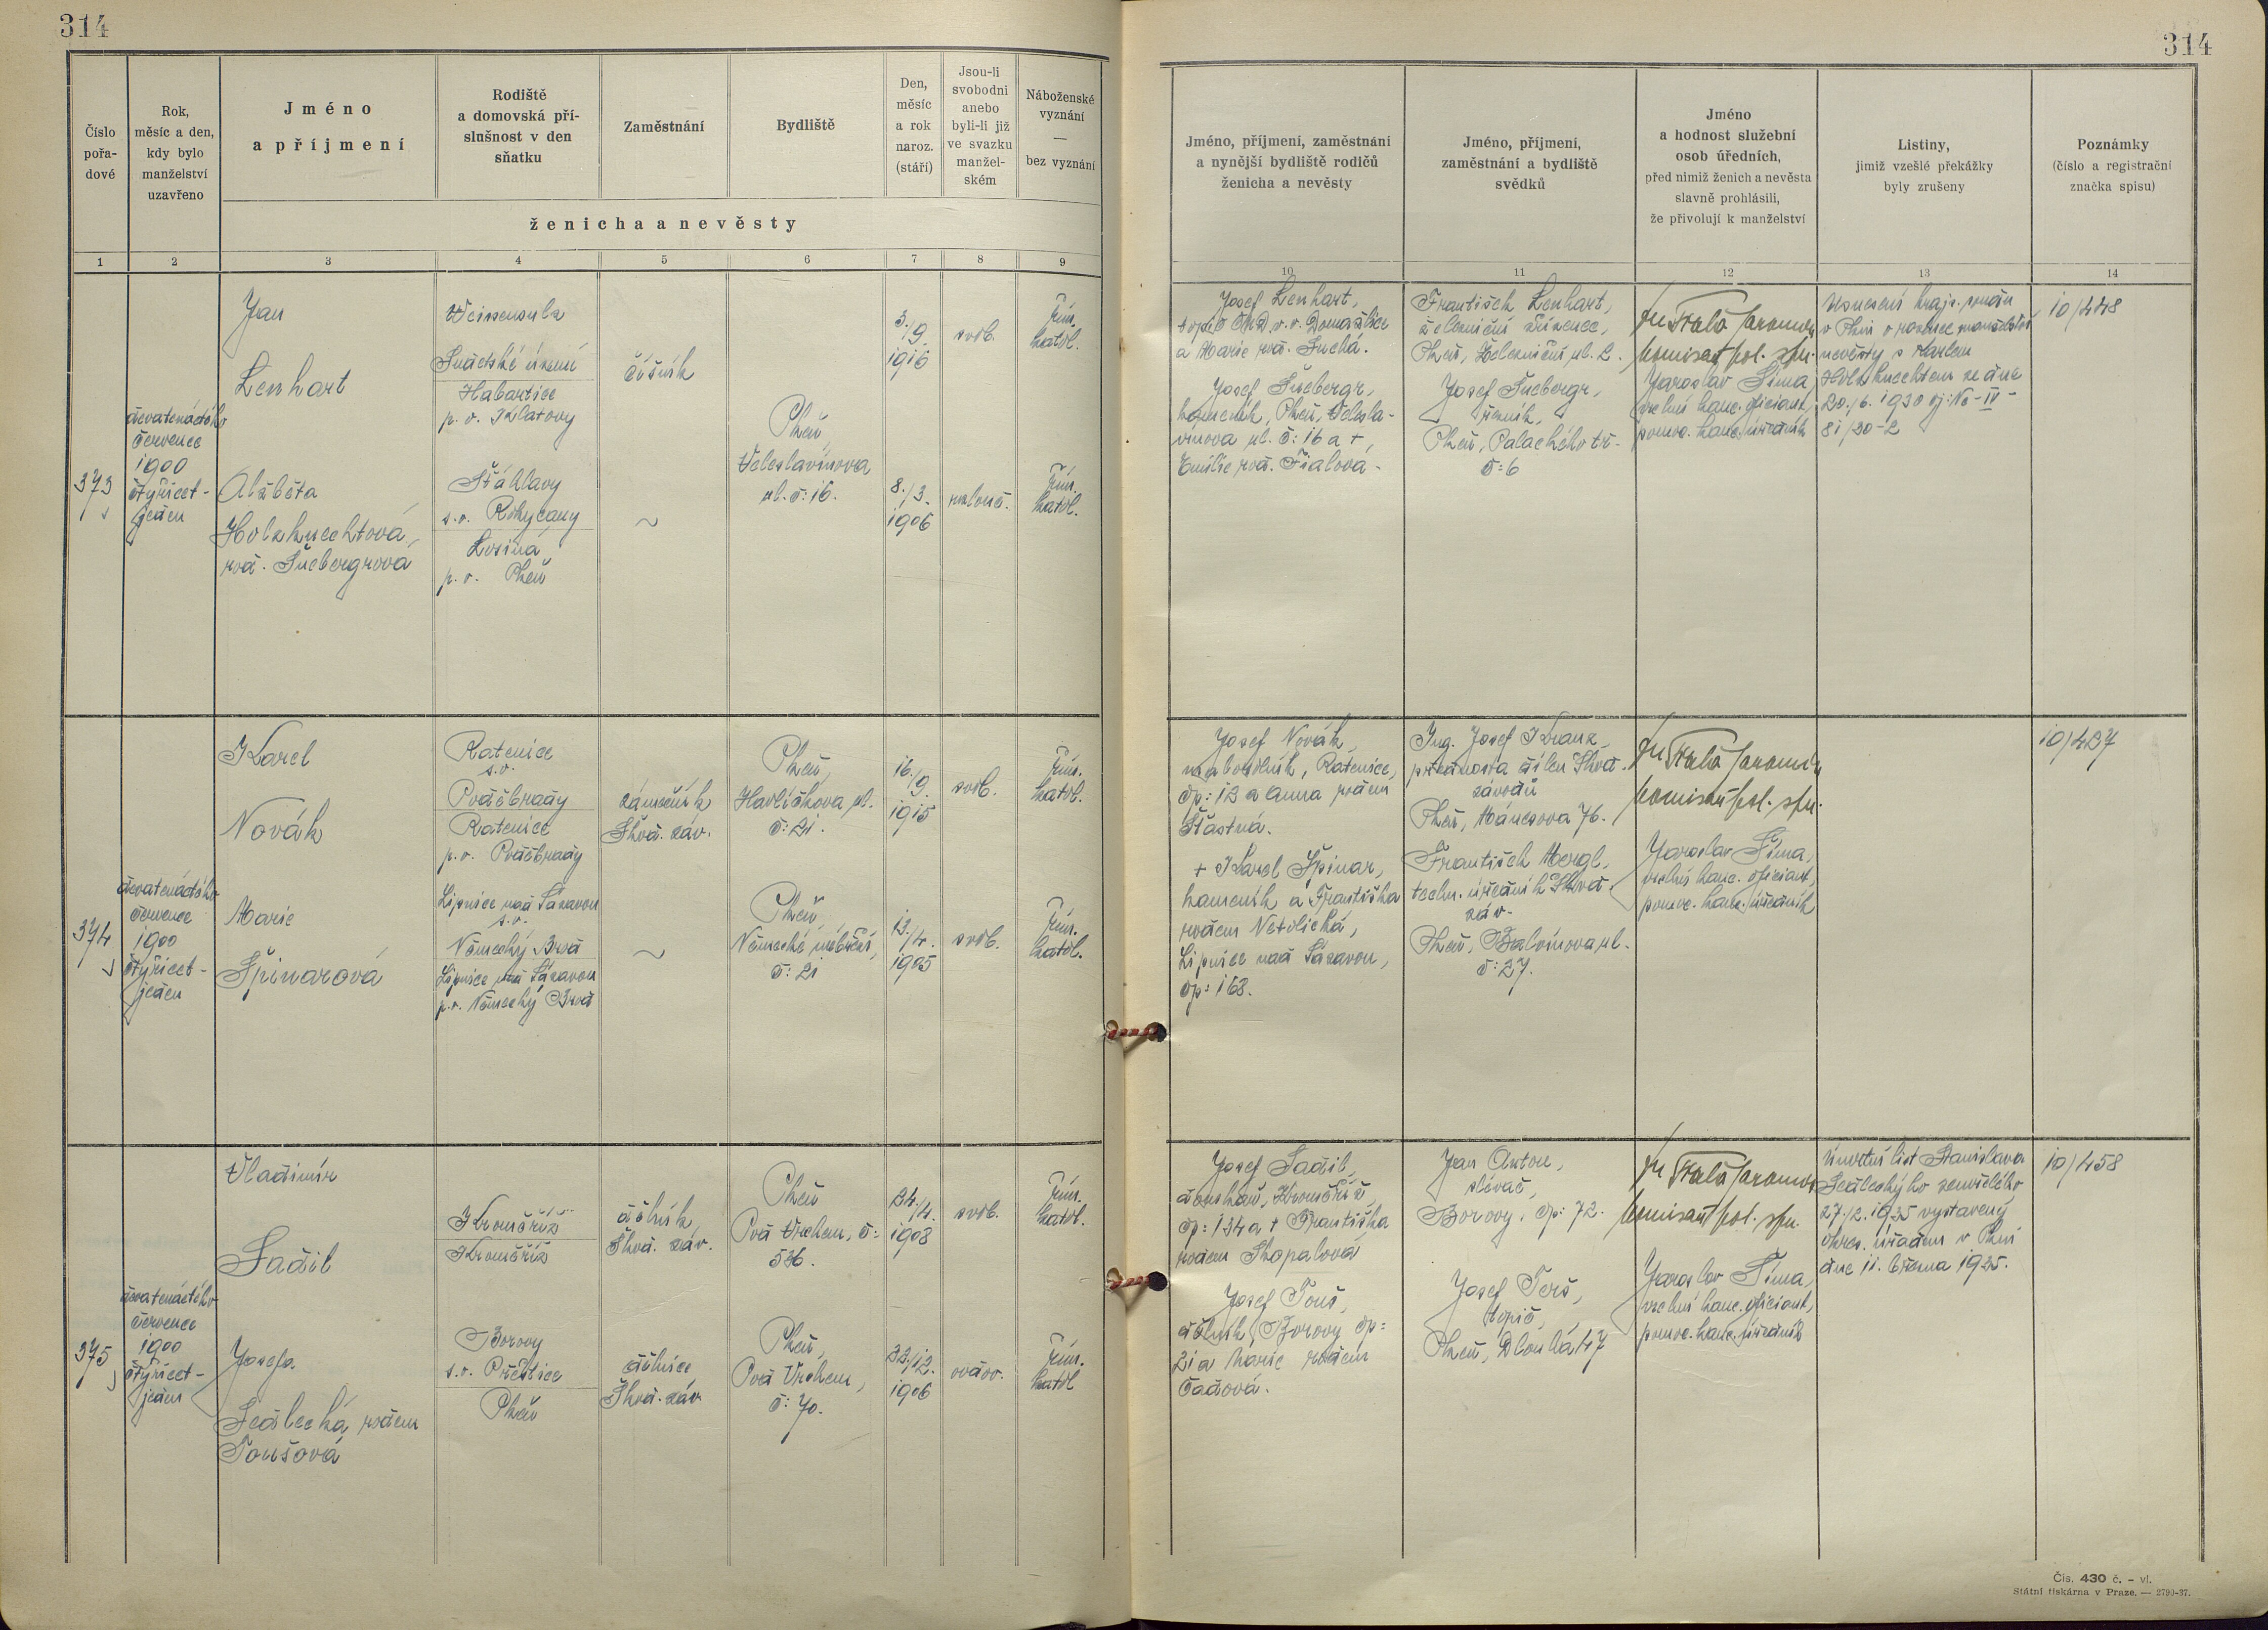 314
314
Číslo
pořa-
dové
Rok,
měsíc a den,
kdy bylo
manželství
uzavřeno
Jméno
a příjmení
Rodiště
a domovská pří-
slušnost v den
sňatku
Zaměstnání
Bydliště
Den,
měsíc
a rok
naroz.
(stáří)
Jsou-li
svobodni
anebo
byli-li již
ve svazku
manžel-
ském
Náboženské
vyznání
—
bez vyznání
ženicha a nevěsty
Jméno, příjmení, zaměstnání
a nynější bydliště rodičů
ženicha a nevěsty
Jméno, příjmení,
zaměstnání a bydliště
svědků
Jméno
a hodnost služební
osob úředních,
před nimiž ženich a nevěsta
slavně prohlásili,
že přivolují k manželství
Listiny,
jimiž vzešlé překážky
byly zrušeny
Poznámky
(číslo a registrační
značka spisu)
1 2 3 4 5 6 7 8 9
10 11 12 13 14
373
devatenáctého
července
1900
čtyřicet-
jeden
Jan
Lenhart
Sudetské území
Habartice
p. o. Klatovy
číšník
3./9.
1916
svob.
řím.
katol.
Plzeň,
Veleslavínova
ul. č: 16.
Alžběta
Holzknechtová,
rod. Šnebergrová
Šťáhlavy
s.o. Rokycany
Losina,
p. o. Plzeň
~
8./3.
1906
rozlouč.
řím.
katol.
Josef Lenhart,
topič ČMD v.v. Domažlice
a Marie rod. Suchá.
Josef Šnebergr,
kameník, Plzeň, Velesla-
vínova ul. č: 16 a +,
Emilie rod. Fialová.
František Lenhart,
železniční zřízenec,
Plzeň, Železniční ul. 2.
Josef Šnebergr,
řezník,
Plzeň, Palackého tř.
č: 6
komisař pol. spr.
Jaroslav Šíma,
vrchní kanc. oficiant,
pomoc. kanc. úředník
Usnesení krajs. soudu
v Plzni o rozluce manželství
nevěsty s Karlem
Holzknechtem ze dne
20./6. 1930 čj: Nc-IV-
81/30-2
10/448
374
devatenáctého
července
1900
čtyřicet-
jeden
Karel
Novák
Ratenice
s.o.
Poděbrady
Ratenice
p.o. Poděbrady
zámečník
Škod. záv.
Plzeň,
Havlíčkova ul.
č: 21.
16./9.
1915
svob.
řím.
katol.
Marie
Špinarová
Lipnice nad Sázavou
s.o.
Německý Brod
Lipnice nad Sázavou
p.o. Německý Brod
~
Plzeň,
Německé nábřeží,
č: 21
13./4.
1905
svob.
řím.
katol.
Josef Novák,
Ratenice,
čp: 12 a Anna rodem
Šťastná.
+ Karel Špinar,
kameník a Františka
rodem Netolická,
Lipnice nad Sázavou,
čp: 168.
Ing. Josef Kranz,
přednosta dílen Škod.
závodů
Plzeň, Mánesova 76.
František Mergl,
techn. úředník Škod.
záv.
Plzeň, Balbínova ul.
č: 27.
komisař pol. spr.
Jaroslav Šíma,
vrchní kanc. oficiant,
pomoc. kanc. úředník
10/437
375
devatenáctého
července
1900
čtyřicet-
jeden
Vladimír
Sadil
Kroměříž
Kroměříž
dělník,
Škod. záv.
Plzeň
Pod Vrchem, č:
536.
24./4.
1908
svob.
řím.
katol.
Josefa
Sedlecká, rodem
Toušová
Borovy
s.o. Přeštice
Plzeň
dělnice
Škod. záv.
Plzeň,
Pod Vrchem,
č: 70.
23./12.
1906
vdov.
řím.
katol.
Josef Sadil,
Kroměříž,
čp: 134 a + Františka
rodem Skopalová
Josef Touš,
dělník, Borovy čp:
21 a Marie rodem
Čadová.
Jan Anton,
slévač,
Borovy, čp: 72.
Josef Terš,
topič,
Plzeň, Dlouhá 47
komisař pol. spr.
Jaroslav Šíma,
vrchní kanc. oficiant,
pomoc. kanc. úředník
Úmrtní list Stanislava
Sedleckýho zemřelého
27./2. 1935 vystavený
okres. úřadem v Plzni
dne 11. března 1935.
10/458
Čis. 430 č. - vl.
Státní tiskárna v Praze. — 2790-37.